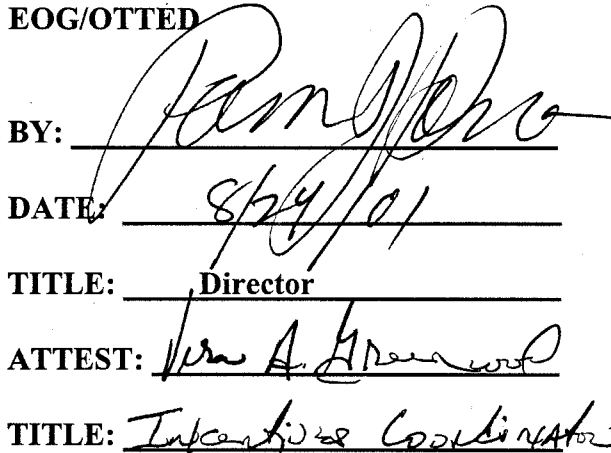 EOG/OTTED
BY: Pam
DATE: 8/24/01
TITLE: Director
ATTEST: Vera A. Greenwood
TITLE: Incentives Coordinator